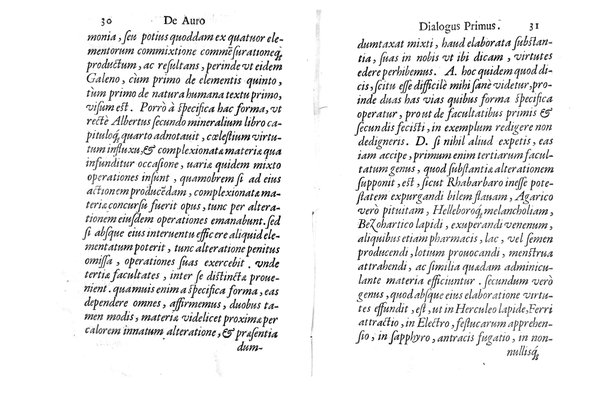 30 De Auro
monia, seu potius quoddam ex quatuor ele-
mentorum commixtione commẽsurationeq́;
productum, ac resultans, perinde vt eidem
Galeno, cùm primo de elementis quinto,
tùm primo de natura humana textu primo,
visum est. Porrò à specifica hac forma, vt
rectè Albertus secundo mineralium libro ca-
pituloq́; quarto adnotauit, cœlestium virtu-
tum influxu, & complexionatæ materiæ qua
infunditur occasione, uariæ quidem mixto
operationes insunt, quamobrem si ad eius
actionem producẽdam, complexionatæ ma-
teriæ concursu fuerit opus, tunc per altera-
tionem eiusdem operationes emanabunt. sed
si absque eius interuentu efficere aliquid ele-
mentatum poterit, tunc alteratione penitus
omissa, operationes suas exercebit. vnde
tertiæ facultates, inter se distinctæ proue-
nient. quamuis enim a specifica forma, eas
dependere omnes, affirmemus, duobus ta-
men modis, materiæ videlicet proximæ per
calorem innatum alteratione, & præsentia
dum-
Dialogus Primus. 31
dumtaxat mixti, haud elaborata substan-
tia, suas in nobis vt ibi dicam, virtutes
edere perhibemus. A. hoc quidem quod di-
cis, scitu esse difficilè mihi sanè videtur, pro-
inde duas has vias quibus forma specifica
operatur, prout de facultatibus primis &
secundis fecisti, in exemplum redigere non
dedigneris. D. si nihil aliud expetis, eas
iam accipe, primum enim tertiarum facul-
tatum genus, quod substantiæ alterationem
supponit, est, sicut Rhabarbaro inesse pote-
statem expurgandi bilem flauam, Agarico
verò pituitam, Helleboroq́; melancholiam,
Bezohartico lapidi, exuperandi venenum,
aliquibus etiam pharmacis, lac, vel semen
producendi, lotium prouocandi, menstrua
attrahendi, ac similia quædam adminicu-
lante materia efficiuntur. secundum verò
genus, quod absque eius elaboratione virtu-
tes effundit, est, ut in Herculeo lapide, Ferri
attractio, in Electro, festucarum apprehen-
sio, in sapphyro, antracis fugatio, in non-
nullisq́;